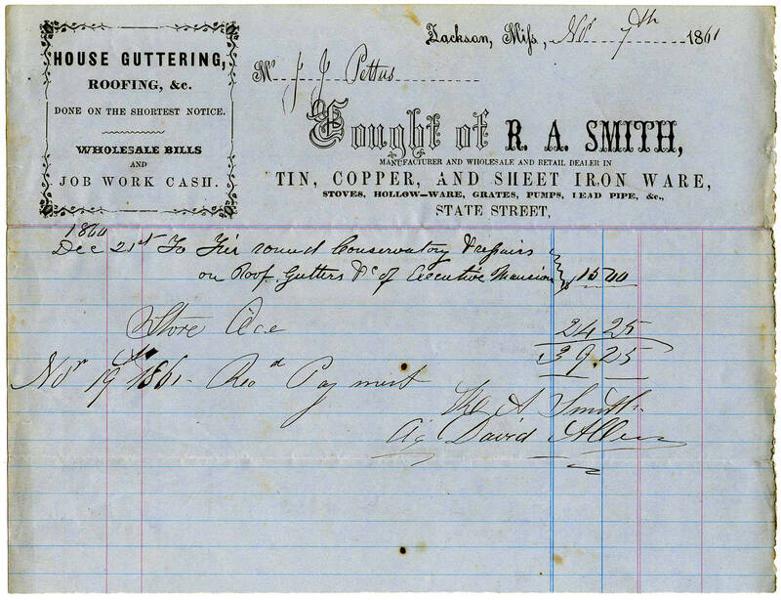 HOUSE GUTTERING,
ROOFING, &c.
DONE ON THE SHORTEST NOTICE.
WHOLESALE BILLS
AND
JOB WORK CASH.
Jackson, Miss., Nov 7th 1861
Mr J J Pettus
Bought of R. A. SMITH,
MANUFACTURER AND WHOLESALE AND RETAIL DEALER IN
TIN, COPPER, AND SHEET IRON WARE,
STOVES, HOLLOW-WARE, GRATES, PUMPS, LEAD PIPE, &c.,
STATE STREET,
1860
Dec 21st To Tin round Conservatory & repairs
on Roof, Gutters &c of Executive Mansion 15 00
Store 24 25
39.25
Novr 19th 1861 Recd Payment
A Smith
David Allen